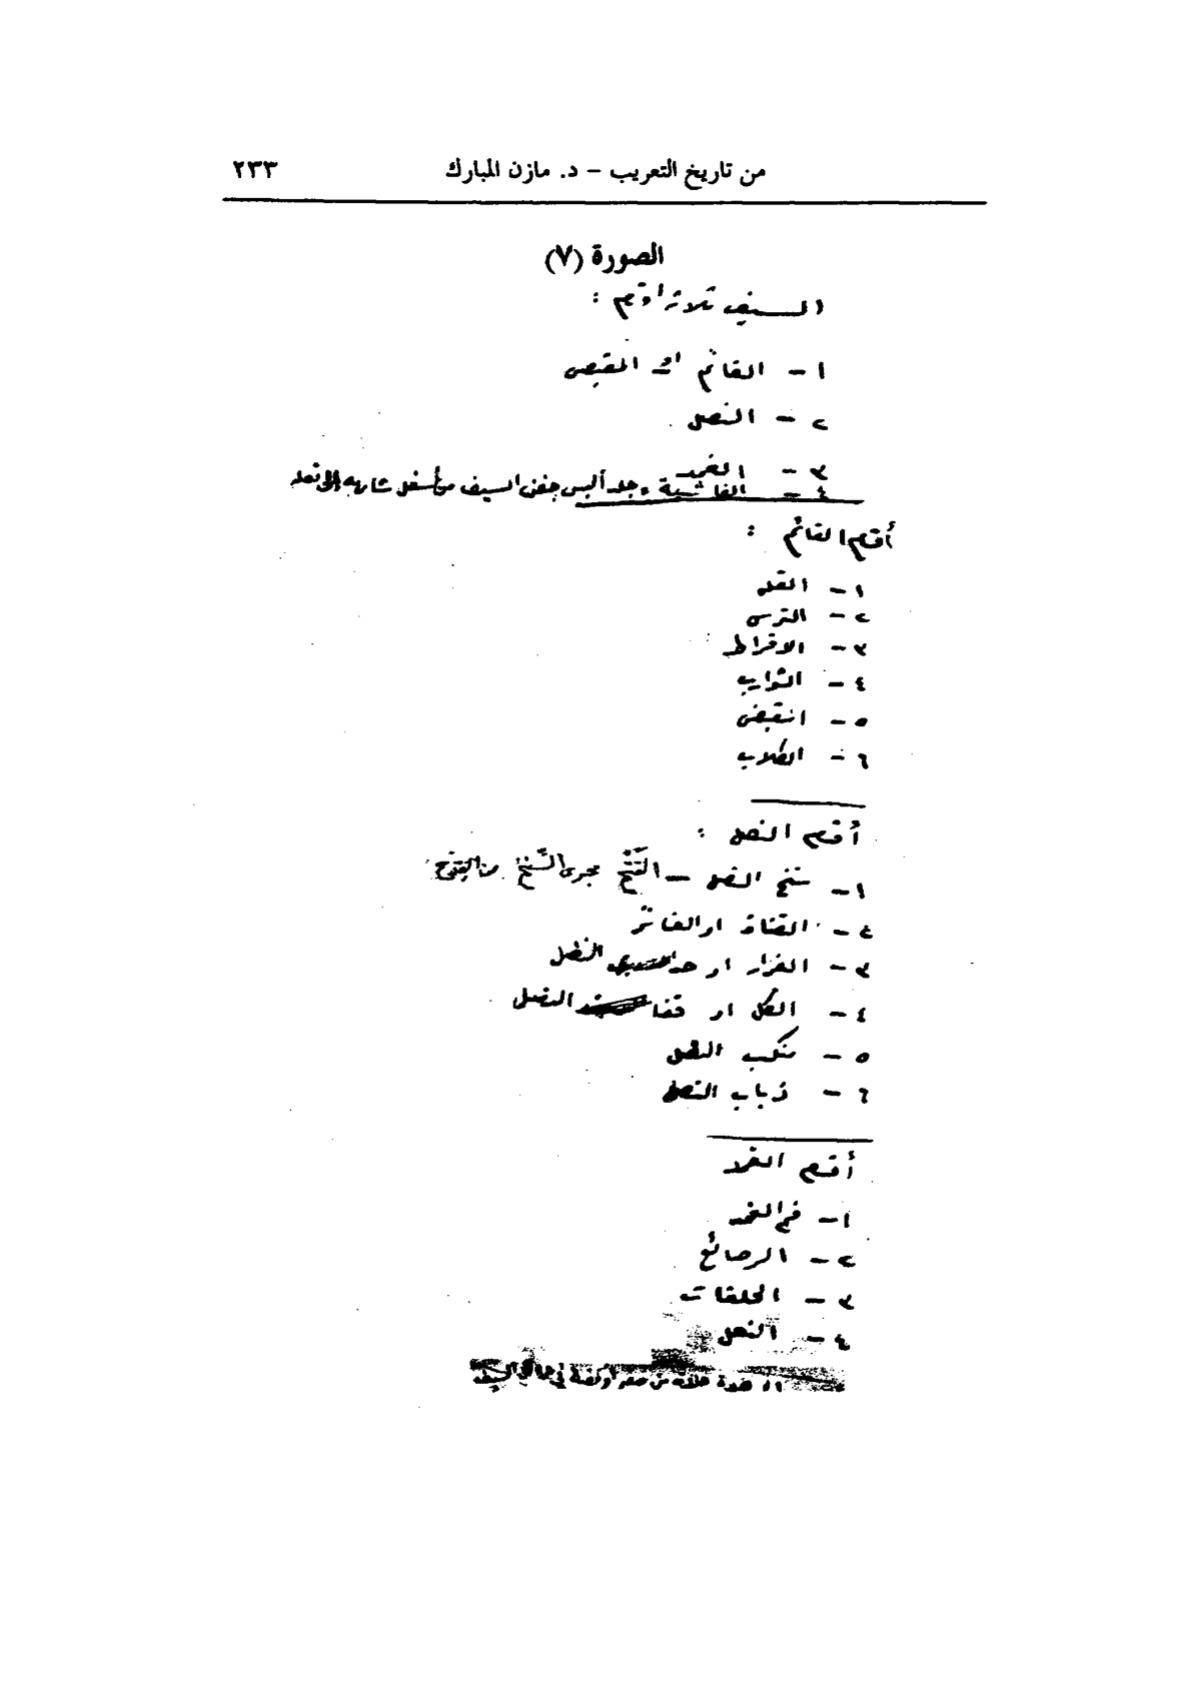 من تاريخ التعريب – د. مازن المبارك ٢٣٣
الصورة (٧)
السيف ثلاثة اقسام :
١ – القائم او المقبض
٢ – النصل
٣ – الغمد
٤ – الغاشية ، جلد ألبس جفن السيف من أسفل شاربه إلى نعله
أقسام القائم :
١ – القلة
٢ – الترس
٣ – الاقراط
٤ – الشوارب
٥ – المقبض
٦ – الكلاب
أقسام النصل :
١ – سنخ النصل – مجرى السنخ من
٢ – القناة او
٣ – الغرار او حد النصل
٤ – الكل او قفا النصل
٥ – منكب النصل
٦ – ذباب النصل
أقسام الغمد
١ – فم الغمد
٢ – الرصائع
٣ – الحلقات
٤ – النعل
من صفر أو فضة في السيف